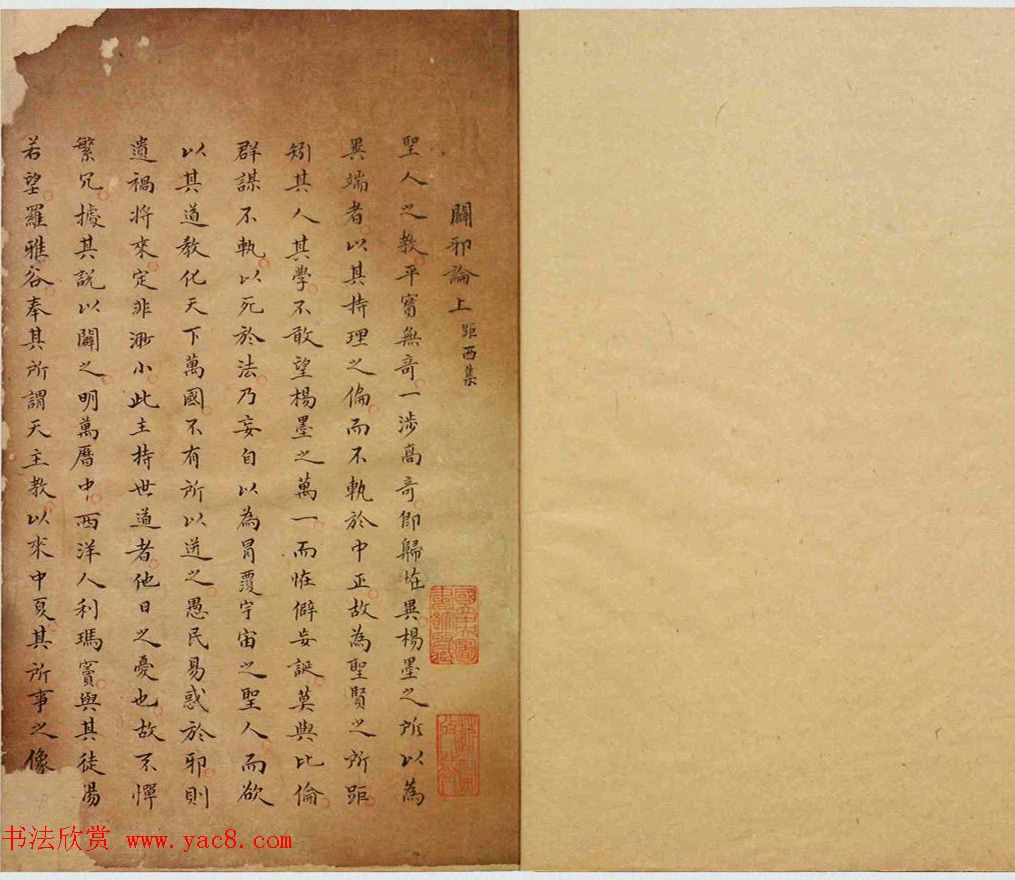 闢邪論上 距西集
聖人之教平實無奇一涉高奇即歸恠異楊墨之所以為
異端者以其持理之偏而不軌於中正故為聖賢之所距
矧其人其學不敢望楊墨之萬一而恠僻妄誕莫與比倫
群謀不軌以死於法乃妄自以為冒覆宇宙之聖人而欲
以其道教化天下萬國不有所以迸之愚民易惑於邪則
遺禍將來定非渺小此主持世道者他日之憂也故不憚
繁冗據其説以闢之明萬曆中西洋人利瑪竇與其徒湯
若望羅雅谷奉其所謂天主教以來中夏其所事之像
书法欣赏 www.yac8.com